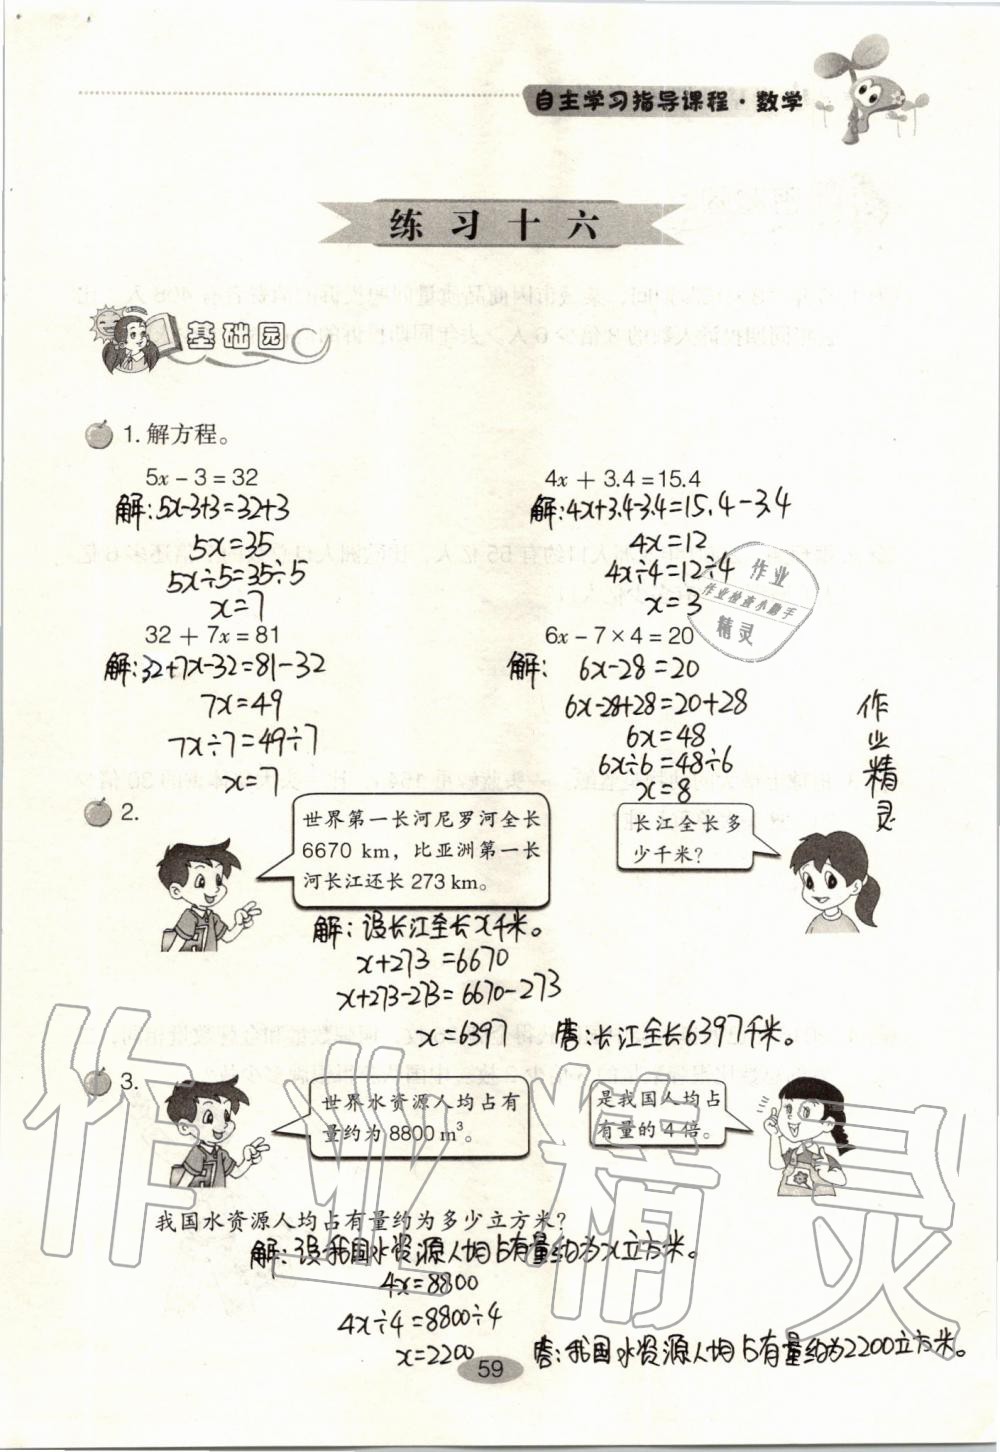 自主学习指导课程·数学
练习十六
基础园
1. 解方程。
5x－3＝32
4x＋3.4＝15.4
解:5x-3+3=32+3
解:4x+3.4-3.4=15.4-3.4
5x=35
4x=12
5x÷5=35÷5
4x÷4=12÷4
x=7
x=3
32＋7x＝81
6x－7×4＝20
解:32+7x-32=81-32
解: 6x-28=20
7x=49
6x-28+28=20+28
7x÷7=49÷7
6x=48
x=7
6x÷6=48÷6
x=8
作业
作业检查小助手
精灵
作业精灵
2.
世界第一长河尼罗河全长
6670 km，比亚洲第一长
河长江还长 273 km。
长江全长多
少千米？
解：设长江全长x千米。
x+273=6670
x+273-273=6670-273
x=6397
答:长江全长6397千米。
3.
世界水资源人均占有
量约为 8800 m³。
是我国人均占
有量的 4 倍。
我国水资源人均占有量约为多少立方米？
解:设我国水资源人均占有量约为x立方米。
4x=8800
4x÷4=8800÷4
x=2200
答:我国水资源人均占有量约为2200立方米。
59
作业精灵